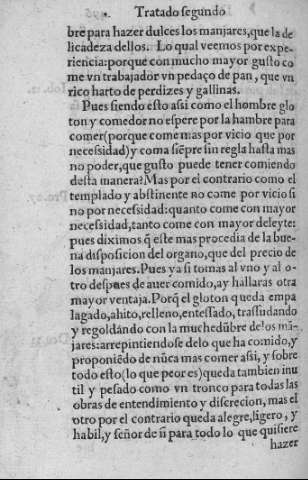 Tratado segundo
bre para hazer dulces los manjares, que la de
licadeza dellos. Lo qual veemos por expe-
riencia: porque con mucho mayor gusto co
me vn trabajador vn pedaço de pan, que vn
rico harto de perdizes y gallinas.
Pues siendo esto assi como el hombre glo
ton y comedor no espere por la hambre para
comer (porque come mas por vicio que por
necessidad) y coma siẽpre sin regla hasta mas
no poder, que gusto puede tener comiendo
desta manera? Mas por el contrario como el
templado y abstinente no come por vicio si
no por necessidad: quanto come con mayor
necessidad, tanto come con mayor deleyte:
pues diximos q̃ este mas procedia de la bue-
na disposicion del organo, que del precio de
los manjares. Pues ya si tomas al vno y al o-
tro despues de auer comido, ay hallaras otra
mayor ventaja. Porq̃ el gloton queda empa
lagado, ahito, relleno, entessado, trassudando
y regoldãdo con la muchedũbre de los mã-
jares: arrepintiendose de lo que ha comido, y
proponiẽdo de nũca mas comer assi, y sobre
todo esto (lo que peor es) queda tambien inu
til y pesado como vn tronco para todas las
obras de entendimiento y discrecion, mas el
otro por el contrario queda alegre, ligero, y
habil, y señor de si para todo lo que quisiere
hazer